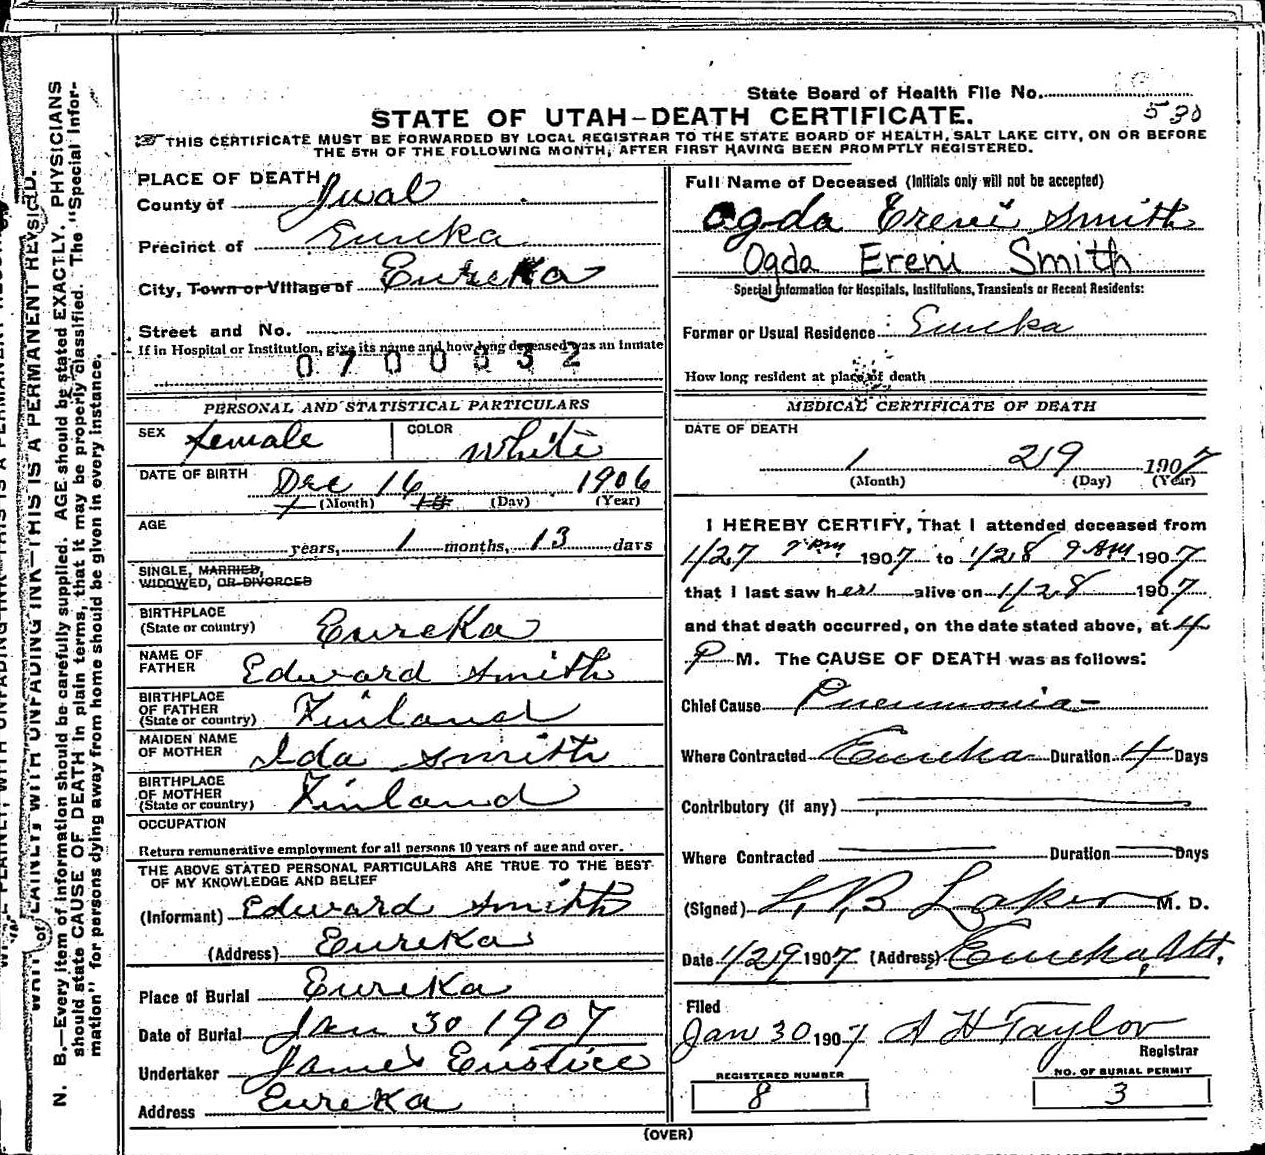 State Board of Health File No.
530
STATE OF UTAH-DEATH CERTIFICATE.
THIS CERTIFICATE MUST BE FORWARDED BY LOCAL REGISTRAR TO THE STATE BOARD OF HEALTH, SALT LAKE CITY, ON OR BEFORE
THE 5TH OF THE FOLLOWING MONTH, AFTER FIRST HAVING BEEN PROMPTLY REGISTERED.
PLACE OF DEATH
County of Jual
Precinct of Eureka
City, Town or Village of Eureka
Street and No.
If in Hospital or Institution, give its name and how long deceased was an inmate
0700832
PERSONAL AND STATISTICAL PARTICULARS
SEX female COLOR White
DATE OF BIRTH Dec 16 1906
(Month) (Day) (Year)
AGE
years, 1 months, 13 days
SINGLE, MARRIED,
WIDOWED, OR DIVORCED
BIRTHPLACE
(State or country) Eureka
NAME OF
FATHER Edward Smith
BIRTHPLACE
OF FATHER
(State or country) Finland
MAIDEN NAME
OF MOTHER Ida Smith
BIRTHPLACE
OF MOTHER
(State or country) Finland
OCCUPATION
Return remunerative employment for all persons 10 years of age and over.
THE ABOVE STATED PERSONAL PARTICULARS ARE TRUE TO THE BEST
OF MY KNOWLEDGE AND BELIEF
(Informant) Edward Smith
(Address) Eureka
Place of Burial Eureka
Date of Burial Jan 30 1907
Undertaker James Eustice
Address Eureka
Full Name of Deceased (Initials only will not be accepted)
Ogda Ereni Smith
Ogda Ereni Smith
Special Information for Hospitals, Institutions, Transients or Recent Residents:
Former or Usual Residence Eureka
How long resident at place of death
MEDICAL CERTIFICATE OF DEATH
DATE OF DEATH
1 29 1907
(Month) (Day) (Year)
I HEREBY CERTIFY, That I attended deceased from
1/27 7 PM 1907 to 1/28 9 AM 1907
that I last saw her alive on 1/28 1907
and that death occurred, on the date stated above, at 4
P M. The CAUSE OF DEATH was as follows:
Chief Cause Pneumonia
Where Contracted Eureka Duration 4 Days
Contributory (if any)
Where Contracted Duration Days
(Signed) Laker M. D.
Date 1/29 1907 (Address) Eureka, Ut.
Filed
Jan 30 1907 A H Taylor
Registrar
REGISTERED NUMBER
8
NO. OF BURIAL PERMIT
3
(OVER)
WRITE PLAINLY, WITH UNFADING INK—THIS IS A PERMANENT
N. B.—Every item of information should be carefully supplied. AGE should be stated EXACTLY. PHYSICIANS
should state CAUSE OF DEATH in plain terms, that it may be properly classified. The "Special Infor-
mation" for persons dying away from home should be given in every instance.